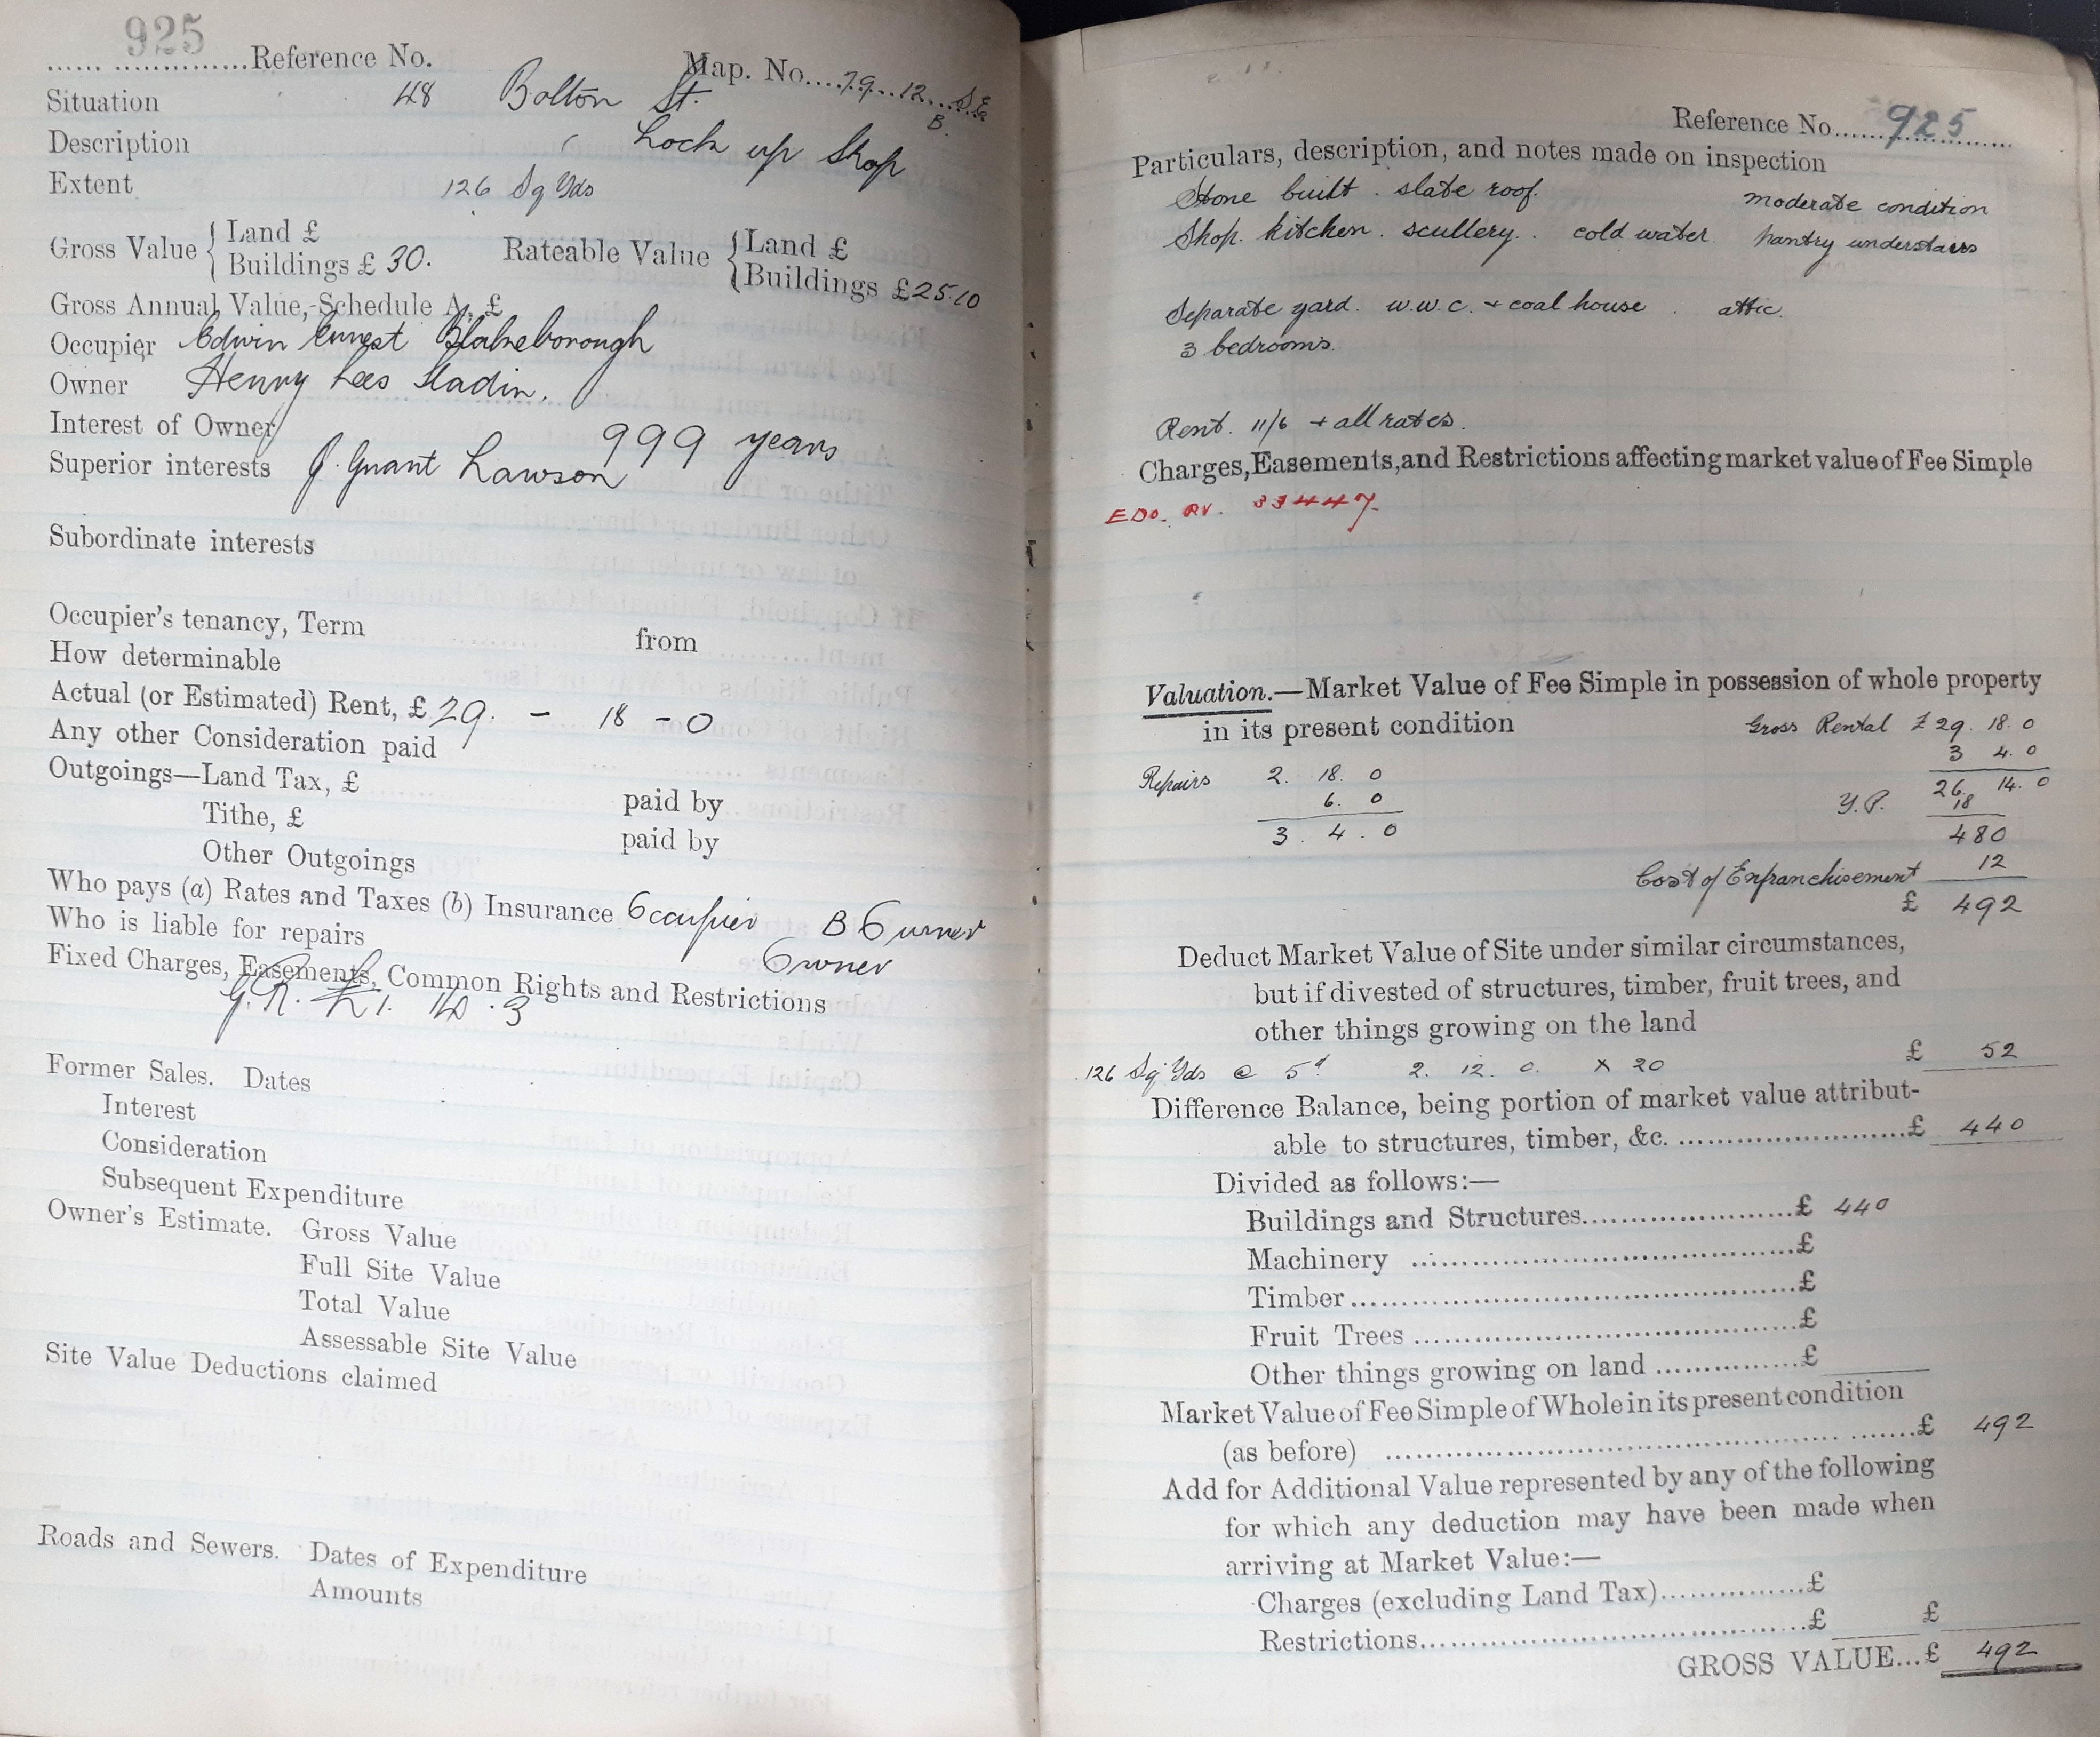 925
Reference No. Map. No....79...12....S.E.
B.
Situation 48 Bolton St.
Description Lock up Shop
Extent 126 Sq Yds
Gross Value { Land £
Buildings £ 30. Rateable Value { Land £
Buildings £25.10
Gross Annual Value, Schedule A, £
Occupier Edwin Ernest Blakeborough
Owner Henry Lees Sladin.
Interest of Owner 999 years
Superior interests J. Grant Lawson
Subordinate interests
Occupier's tenancy, Term from
How determinable
Actual (or Estimated) Rent, £ 29. - 18 - 0
Any other Consideration paid
Outgoings—Land Tax, £ paid by
Tithe, £ paid by
Other Outgoings
Who pays (a) Rates and Taxes (b) Insurance Occupier B Owner
Who is liable for repairs Owner
Fixed Charges, Easements, Common Rights and Restrictions
G.R. £1.
Former Sales. Dates
Interest
Consideration
Subsequent Expenditure
Owner's Estimate. Gross Value
Full Site Value
Total Value
Assessable Site Value
Site Value Deductions claimed
Roads and Sewers. Dates of Expenditure
Amounts
Reference No......925
Particulars, description, and notes made on inspection
Stone built . slate roof. moderate condition
Shop. kitchen . scullery. . cold water. pantry understairs
Separate yard. w.w.c. + coal house . attic.
3 bedrooms.
Rent. 11/6 + all rates.
Charges, Easements, and Restrictions affecting market value of Fee Simple
EDO. RV. 33447.
Valuation.—Market Value of Fee Simple in possession of whole property
in its present condition Gross Rental £ 29. 18. 0
Repairs 2. 18. 0 3 4. 0
6. 0 26. 14. 0
3 . 4 . 0 Y.P. 18
480
Cost of Enfranchisement 12
£ 492
Deduct Market Value of Site under similar circumstances,
but if divested of structures, timber, fruit trees, and
other things growing on the land
126 Sq Yds @ 5d 2. 12. 0. x 20 £ 52
Difference Balance, being portion of market value attribut-
able to structures, timber, &c. ........................£ 440
Divided as follows:—
Buildings and Structures......................£ 440
Machinery ......................................£
Timber............................................£
Fruit Trees .....................................£
Other things growing on land ..............£
Market Value of Fee Simple of Whole in its present condition
(as before) ..............................................£ 492
Add for Additional Value represented by any of the following
for which any deduction may have been made when
arriving at Market Value:—
Charges (excluding Land Tax)...............£
Restrictions......................................£ £
GROSS VALUE...£ 492